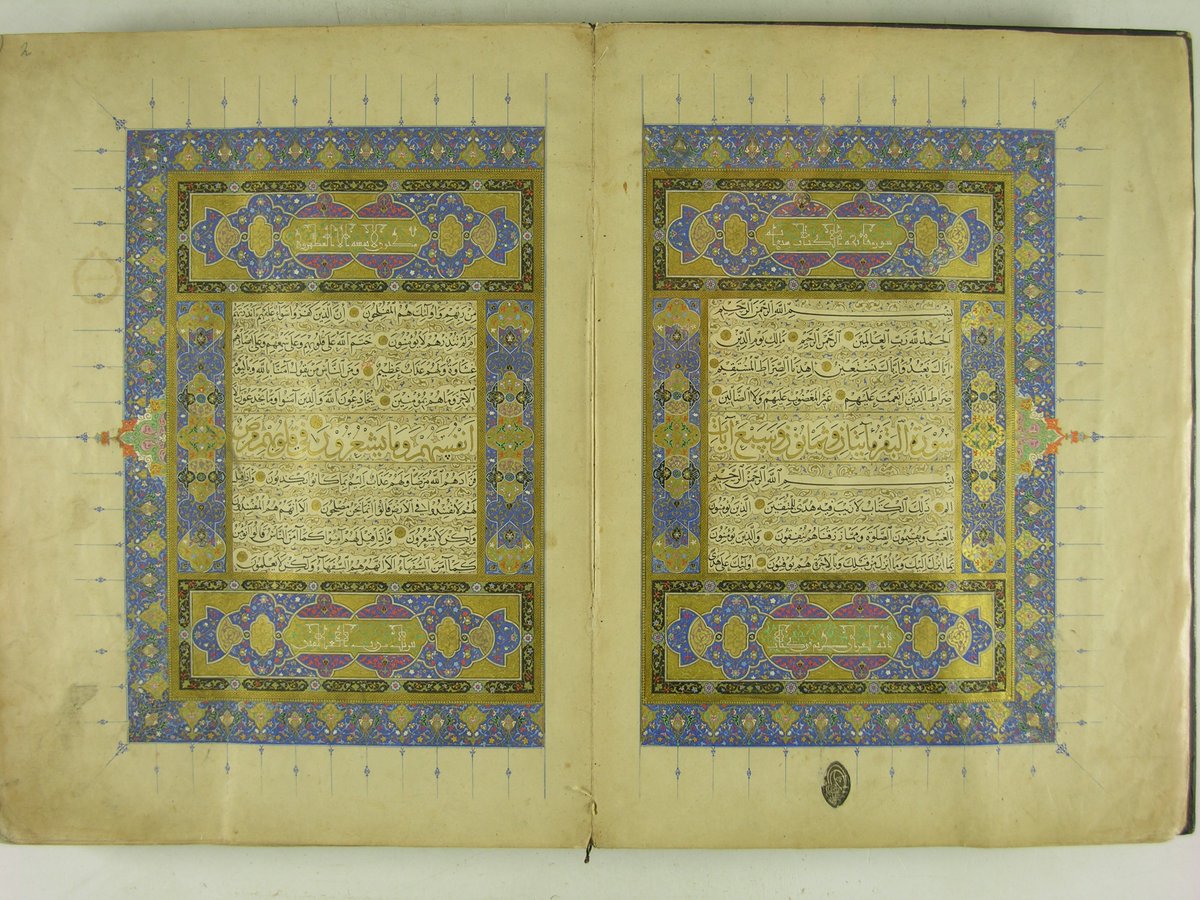 سورة فاتحة الكتاب سبع آيات
بسم الله الرحمن الرحيم
الحمد لله رب العالمين الرحمن الرحيم مالك يوم الدين
اياك نعبد واياك نستعين اهدنا الصراط المستقيم
صراط الذين انعمت عليهم غير المغضوب عليهم ولا الضالين
سورة البقرة مايتان وثمانون وسبع آيات
بسم الله الرحمن الرحيم
الم ذلك الكتاب لا ريب فيه هدى للمتقين الذين يؤمنون
بالغيب ويقيمون الصلوة ومما رزقناهم ينفقون والذين يؤمنون
بما انزل اليك وما انزل من قبلك وبالآخرة هم يوقنون اولئك على هدى
انه لقرآن كريم في كتاب
مكنون لا يمسه الا المطهرون
من ربهم واولئك هم المفلحون ان الذين كفروا سواء عليهم ءانذرتهم
ام لم تنذرهم لا يؤمنون ختم الله على قلوبهم وعلى سمعهم وعلى ابصارهم
غشاوة ولهم عذاب عظيم ومن الناس من يقول آمنا بالله وباليوم
الآخر وما هم بمؤمنين يخادعون الله والذين آمنوا وما يخدعون الا
انفسهم وما يشعرون في قلوبهم مرض
فزادهم الله مرضا ولهم عذاب اليم بما كانوا يكذبون واذا قيل
لهم لا تفسدوا في الارض قالوا انما نحن مصلحون الا انهم هم المفسدون
ولكن لا يشعرون واذا قيل لهم آمنوا كما آمن الناس قالوا انؤمن
كما آمن السفهاء الا انهم هم السفهاء ولكن لا يعلمون
تنزيل من رب العالمين
2